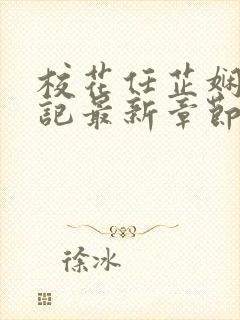 校花任芷娴
记最新章节
徐冰